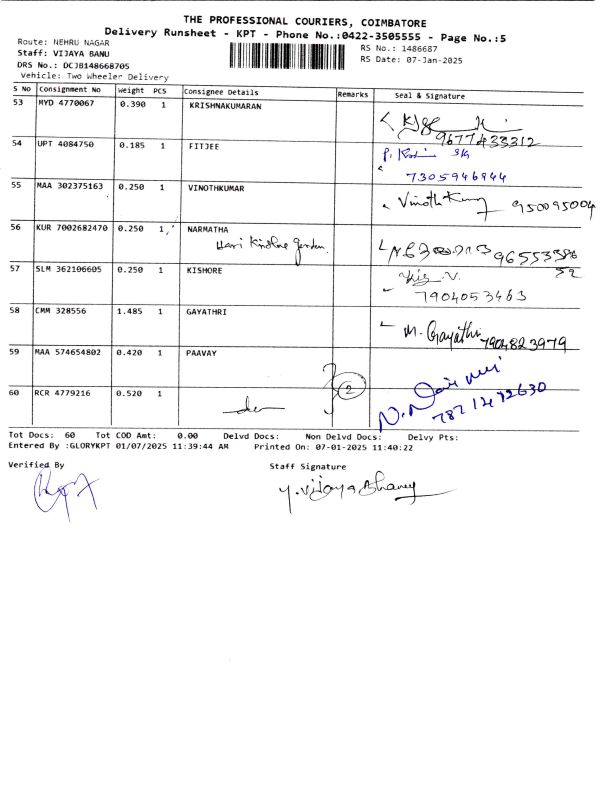 THE PROFESSIONAL COURIERS, COIMBATORE
Delivery Runsheet - KPT - Phone No.:0422-3505555 - Page No.:5
Route: NEHRU NAGAR
RS No.: 1486687
Staff: VIJAYA BANU
RS Date: 07-Jan-2025
DRS No.: DCJB148668705
Vehicle: Two Wheeler Delivery
S No Consignment No Weight PCS Consignee Details Remarks Seal & Signature
53 MYD 4770067 0.390 1 KRISHNAKUMARAN
9677433312
54 UPT 4084750 0.185 1 FITJEE
7305946944
55 MAA 302375163 0.250 1 VINOTHKUMAR Vinoth Kumar 950095004
56 KUR 7002682470 0.250 1 NARMATHA
Hari Krishna garden
57 SLM 362106605 0.250 1 KISHORE
7904053463
58 CMM 328556 1.485 1 GAYATHRI M. Gayathri 7904823979
59 MAA 574654802 0.420 1 PAAVAY
2
60 RCR 4779216 0.520 1
Tot Docs: 60 Tot COD Amt: 0.00 Delvd Docs: Non Delvd Docs: Delvy Pts:
Entered By :GLORYKPT 01/07/2025 11:39:44 AM Printed On: 07-01-2025 11:40:22
Verified By Staff Signature